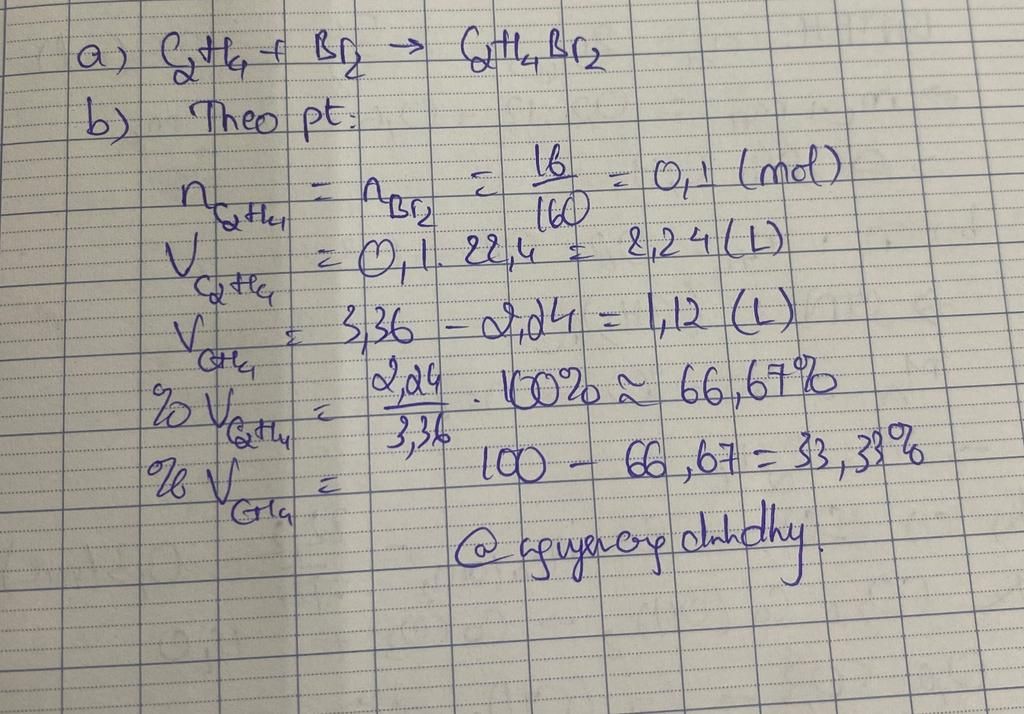 a) C₂H₄ + Br₂ → C₂H₄Br₂
b) Theo pt:
n C₂H₄ = n Br₂ = 16/160 = 0,1 (mol)
V C₂H₄ = 0,1. 22,4 = 2,24 (L)
V CH₄ = 3,36 - 2,24 = 1,12 (L)
% V C₂H₄ = 2,24/3,36 . 100% ≈ 66,67%
% V CH₄ = 100 - 66,67 = 33,33%
@